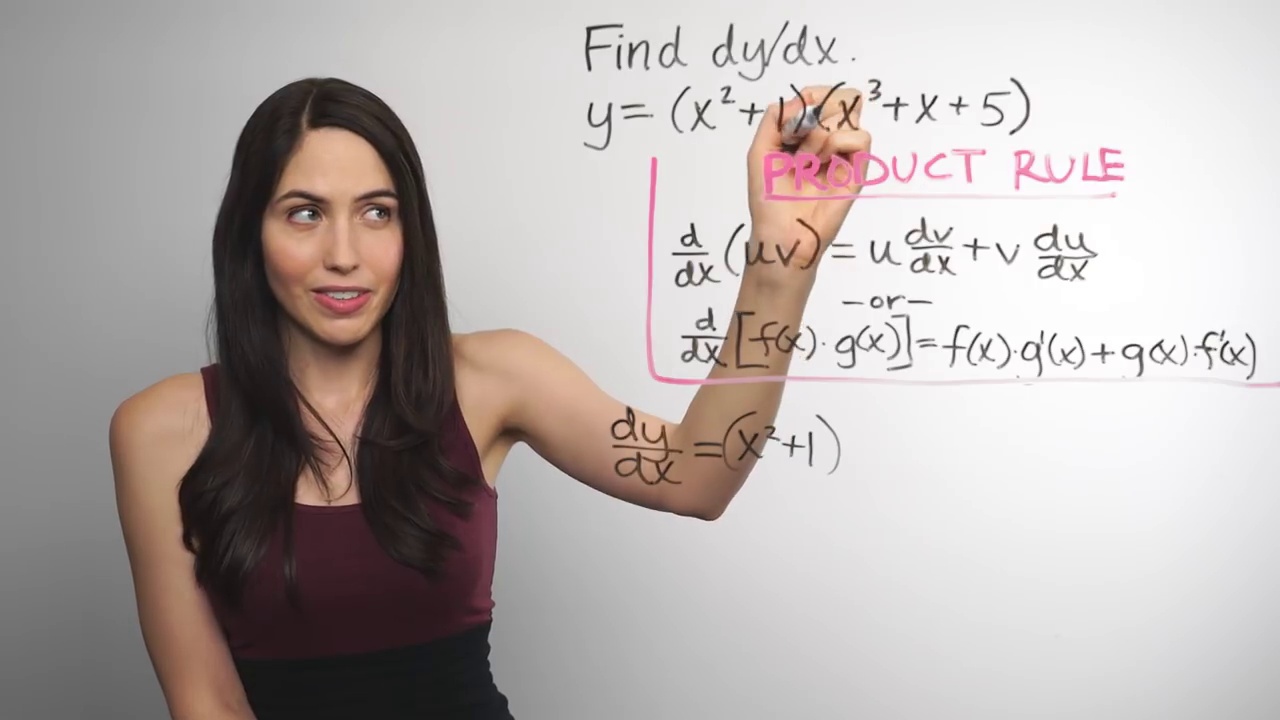 Find dy/dx.
y = (x² + 1)(x³ + x + 5)
PRODUCT RULE
d/dx (uv) = u dv/dx + v du/dx
-or-
d/dx [f(x)·g(x)] = f(x)·g'(x) + g(x)·f'(x)
dy/dx = (x² + 1)